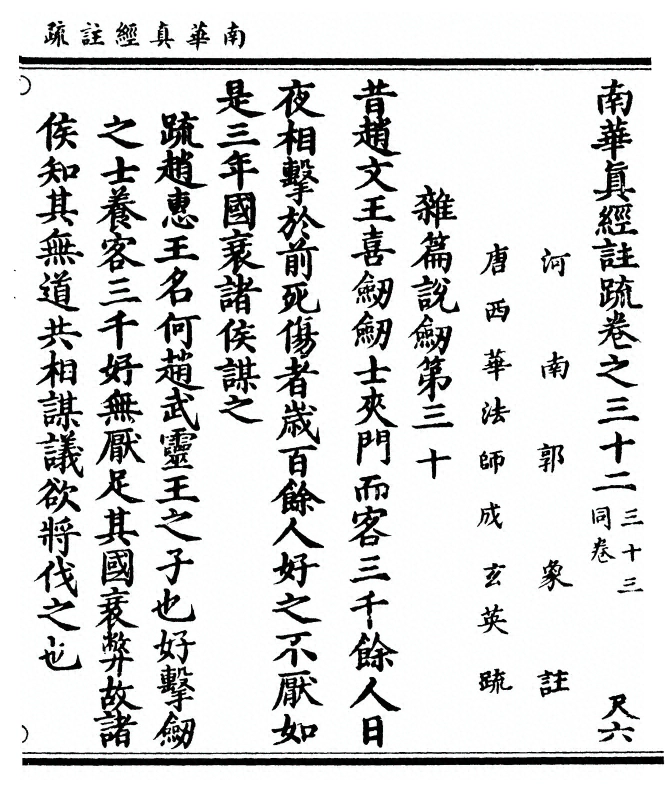 南華真經註疏
南華真經註疏卷之三十二 三十三同卷 尺六
河南郭象註
唐西華法師成玄英疏
雜篇說劒第三十
昔趙文王喜劒劒士夾門而客三千餘人日
夜相擊於前死傷者歲百餘人好之不厭如
是三年國衰諸侯謀之
疏趙惠王名何趙武靈王之子也好擊劒
之士養客三千好無厭足其國衰弊故諸
侯知其無道共相謀議欲將伐之也